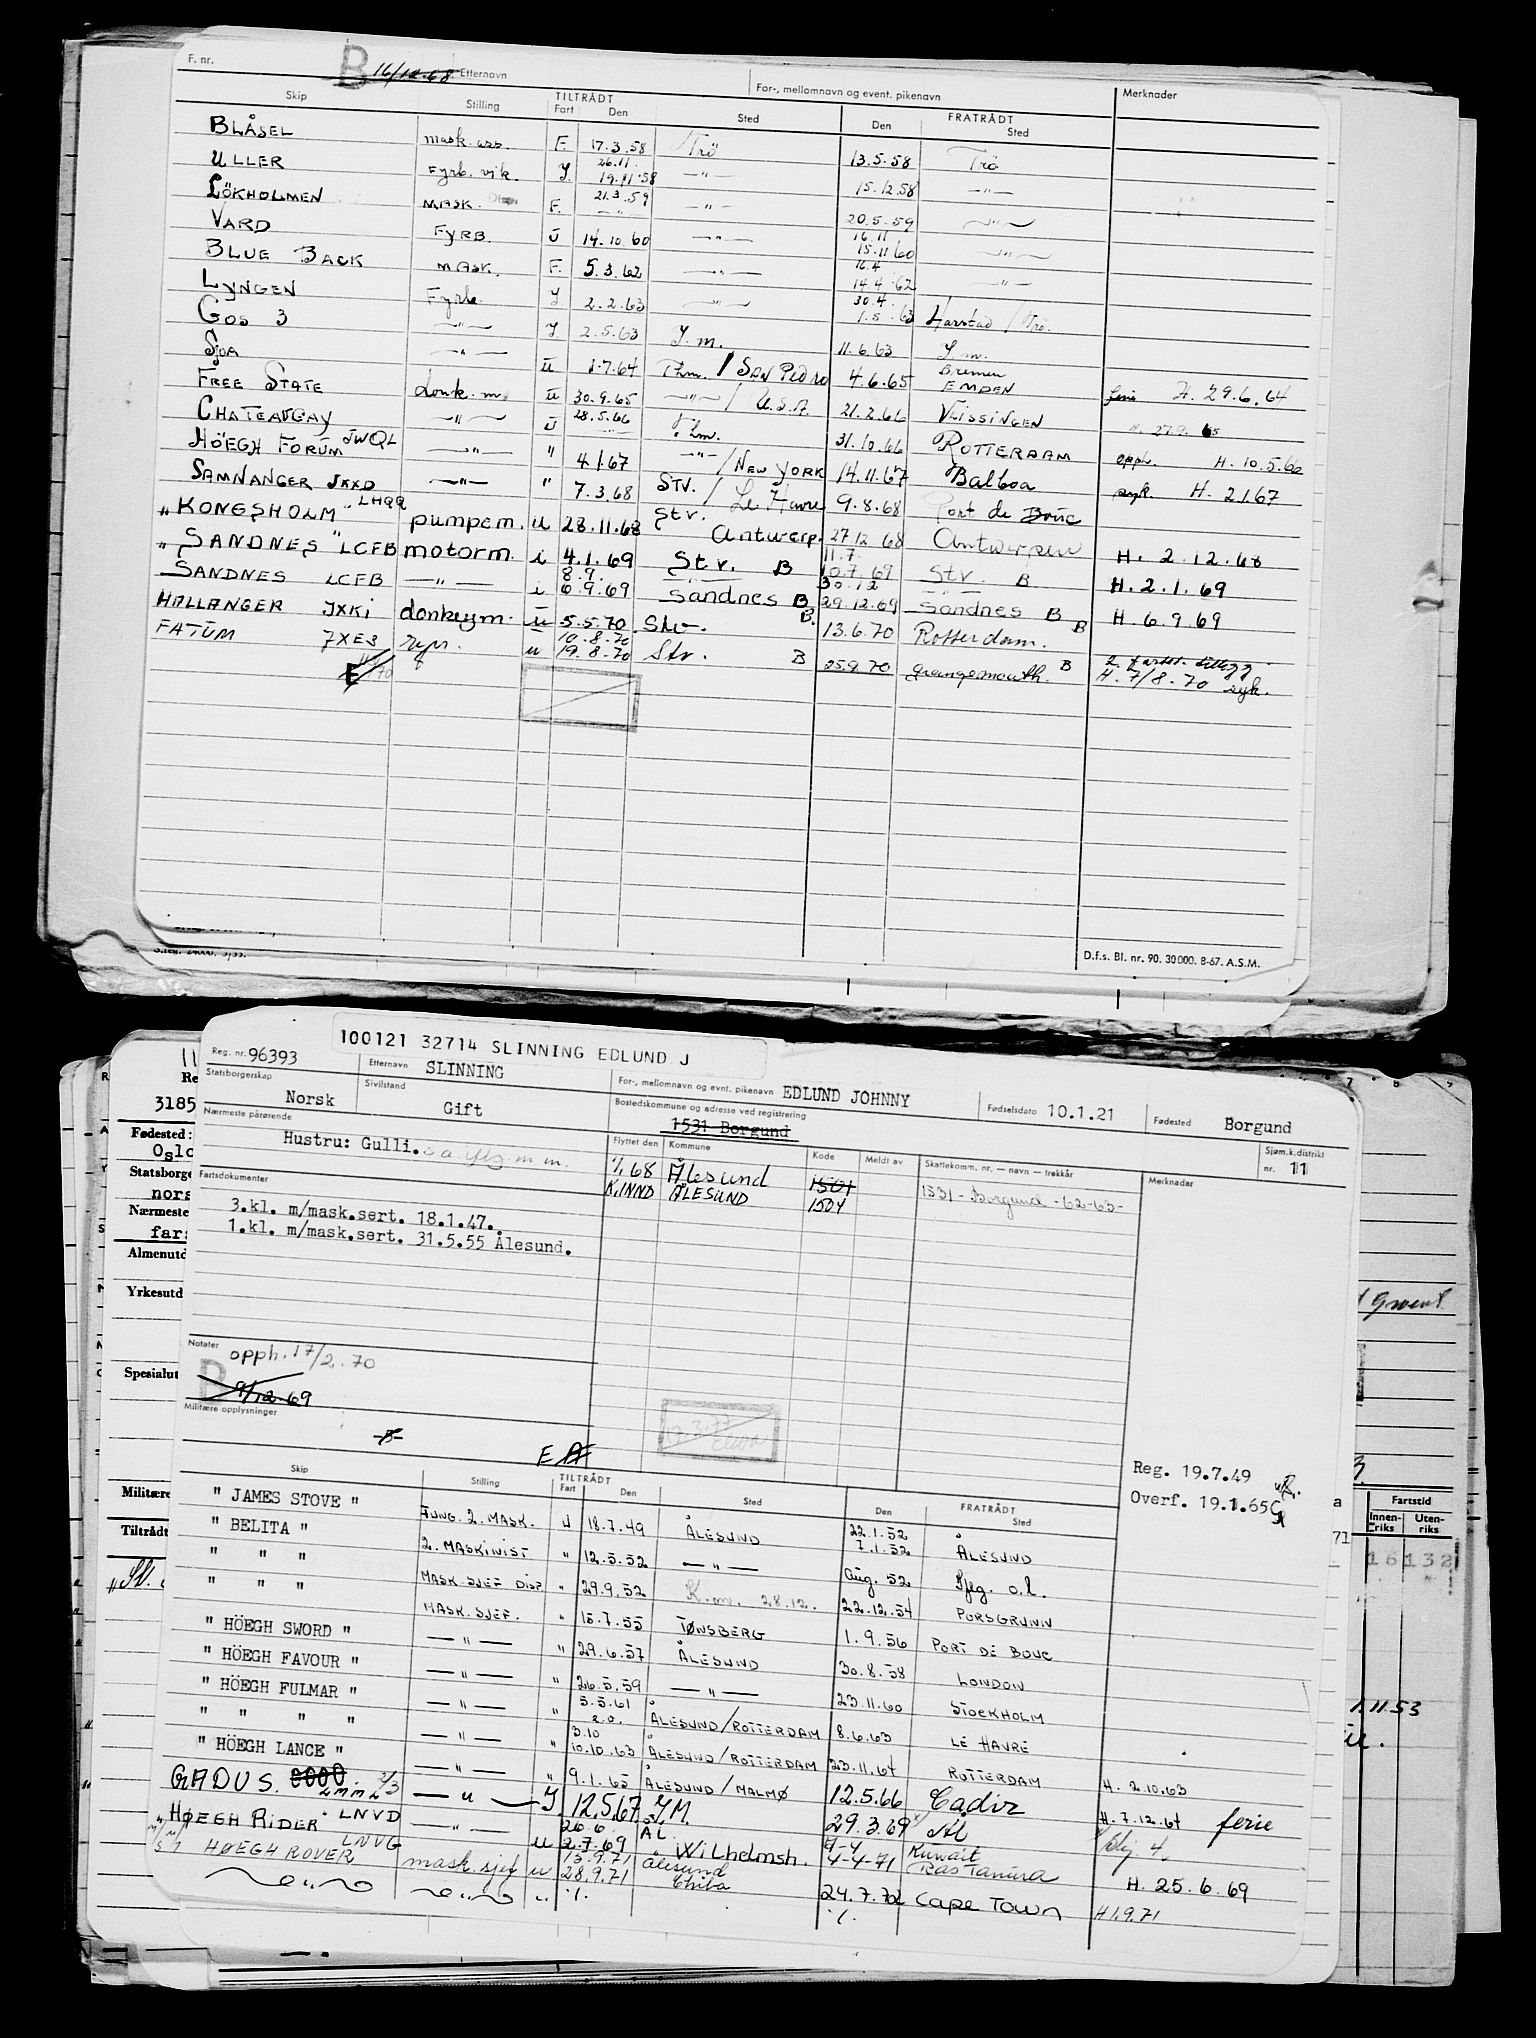 F. nr.
B 16/12.68 Etternavn
For-, mellomnavn og event. pikenavn
Merknader
Skip Stilling TILTRÅDT Fart Den Sted FRATRÅDT Den Sted
BLÅSEL mask. ass. F. 17.3.58 Trö 13.5.58 Trö
ULLER Fyrb. vik. J. 26.11. 19.11.58 —"— 15.12.58 —"—
LÖKHOLMEN MASK. F. 21.3.59 —"— 20.5.59 —"—
VARD FYRB. U 14.10.60 —"— 16.11 15.11.60 —"—
BLUE BACK MASK. F. 5.3.62 —"— 16.4 14.4.62 —"—
LYNGEN Fyrb. J. 2.2.63 —"— 30.4. 1.5.63 Harstad / Trö.
GOS 3 —"— J. 2.5.63 J.m. 11.6.63 J.m.
SJOA —"— U 1.7.64 Thm. / SAN PEDRO 4.6.65 Bremen EMDEN ferie H. 29.6.64
FREE STATE donk.m. U 30.9.65 —"— / U.S.A. 21.2.66 VLISSINGEN H. 27.9.65
CHATEAUGAY —"— U 28.5.66 Thm. 31.10.66 ROTTERDAM opph. H. 10.5.66
HÖEGH FORUM JWQL —"— " 4.1.67 —"— / NEW YORK 14.11.67 Balboa syk. H. 2.1.67
SAMNANGER JXXD —"— " 7.3.68 STV. / Le Havre 9.8.68 Port de Bouc
"KONGSHOLM" LHQQ pumpem. u 28.11.68 Stv. Antwerp. 27.12.68 Antwerpen H. 2.12.68
"SANDNES" LCFB motorm. i 4.1.69 Stv. B 11.7. 10.7.69 Stv. B H. 2.1.69
SANDNES LCFB —"— i 8.9. 6.9.69 Sandnes B 30.12 29.12.69 Sandnes B H. 6.9.69
HALLANGER JXKI donkeym. u 5.5.70 Stv. B. 13.6.70 Rotterdam. B
FATUM JXES repr. u 10.8.70 19.8.70 Stv. B 25.9.70 Grangemouth. B 2. fartst. tillegg H. 7/8.70 syk.
E
D.f.s. Bl. nr. 90. 30000. 8-67. A.S.M.
100121 32714 SLINNING EDLUND J
Reg. nr. 96393 Etternavn SLINNING For-, mellomnavn og evnt. pikenavn EDLUND JOHNNY Fødselsdato 10.1.21 Fødested Borgund
Statsborgerskap Norsk Sivilstand Gift Bostedskommune og adresse ved registrering 1531 Borgund Sjøm.k.distrikt nr. 11
Nærmeste pårørende Hustru: Gulli. Flyttet den Kommune Kode Meldt av Skattekomm. nr. – navn – trekkår Merknader
1/1 68 Ålesund 1501 1531 - Borgund - 62-63-
K.INND ÅLESUND 1504
Fartsdokumenter
3.kl. m/mask.sert. 18.1.47.
1.kl. m/mask.sert. 31.5.55 Ålesund.
Notater opph. 17/2.70
B 9/12.69
Militære opplysninger
-B-
E
Reg. 19.7.49
Overf. 19.1.65
Skip Stilling TILTRÅDT Fart Den Sted FRATRÅDT Den Sted
" JAMES STOVE " JUNG. 2. MASK. U 18.7.49 ÅLESUND 22.1.52 7.1.52 ÅLESUND
" BELITA " 2. MASKINIST " 12.5.52 —"— Aug. 52 Sfg. o.l.
" " " MASK. SJEF DISP " 29.9.52 K.m. 28.12. 22.12.54 PORSGRUNN
" " " MASK. SJEF. " 15.7.55 TØNSBERG 1.9.56 PORT DE BOUC
" HÖEGH SWORD " —"— " 29.6.57 ÅLESUND 30.8.58 LONDON
" HÖEGH FAVOUR " —"— " 26.5.59 —"— 23.11.60 STOCKHOLM
" HÖEGH FULMAR " —"— " 5.5.61 ÅLESUND/ROTTERDAM 8.6.63 LE HAVRE
" " " " —"— " 3.10 10.10.63 ÅLESUND/ROTTERDAM 23.11.64 ROTTERDAM H. 2.10.63
" HÖEGH LANCE " —"— " 9.1.65 ÅLESUND/MALMØ 12.5.66 Cadiz H. 7.12.64 ferie
GADUS. —"— J 12.5.67 J.M. 29.3.69 Ål
"HØEGH RIDER" LNVD —"— u 26.6. 2.7.69 ÅL. Wilhelmsh. 4-4-71 Kuwait Ras Tanura H. 25.6.69
HØEGH ROVER LNVG mask.sjef u 13.9.71 28.9.71 Ålesund Chiba 24.7.72 Cape Town H 1.9.71
—"— —"— " ·/. ·/.
3185
Fødested:
Oslo
nors
Nærmeste
Almenutd
Yrkesutd
Spesialut
Militære
Tiltrådt
Fartstid
Innen-riks Uten-riks
16 132
1.11.53
71